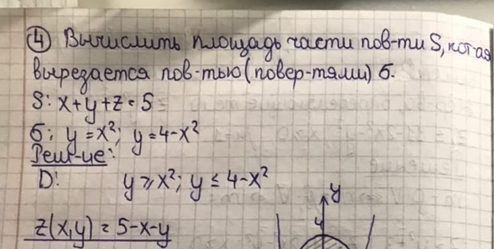 ④ Вычислить площадь части пов-ти S, кот-ая
вырезается пов-тью (повер-тями) б.
S: x+y+z=5
б: y=x²; y=4-x²
Реш-ие:
D: y⩾x²; y≤4-x²
y
4
z(x,y)=5-x-y